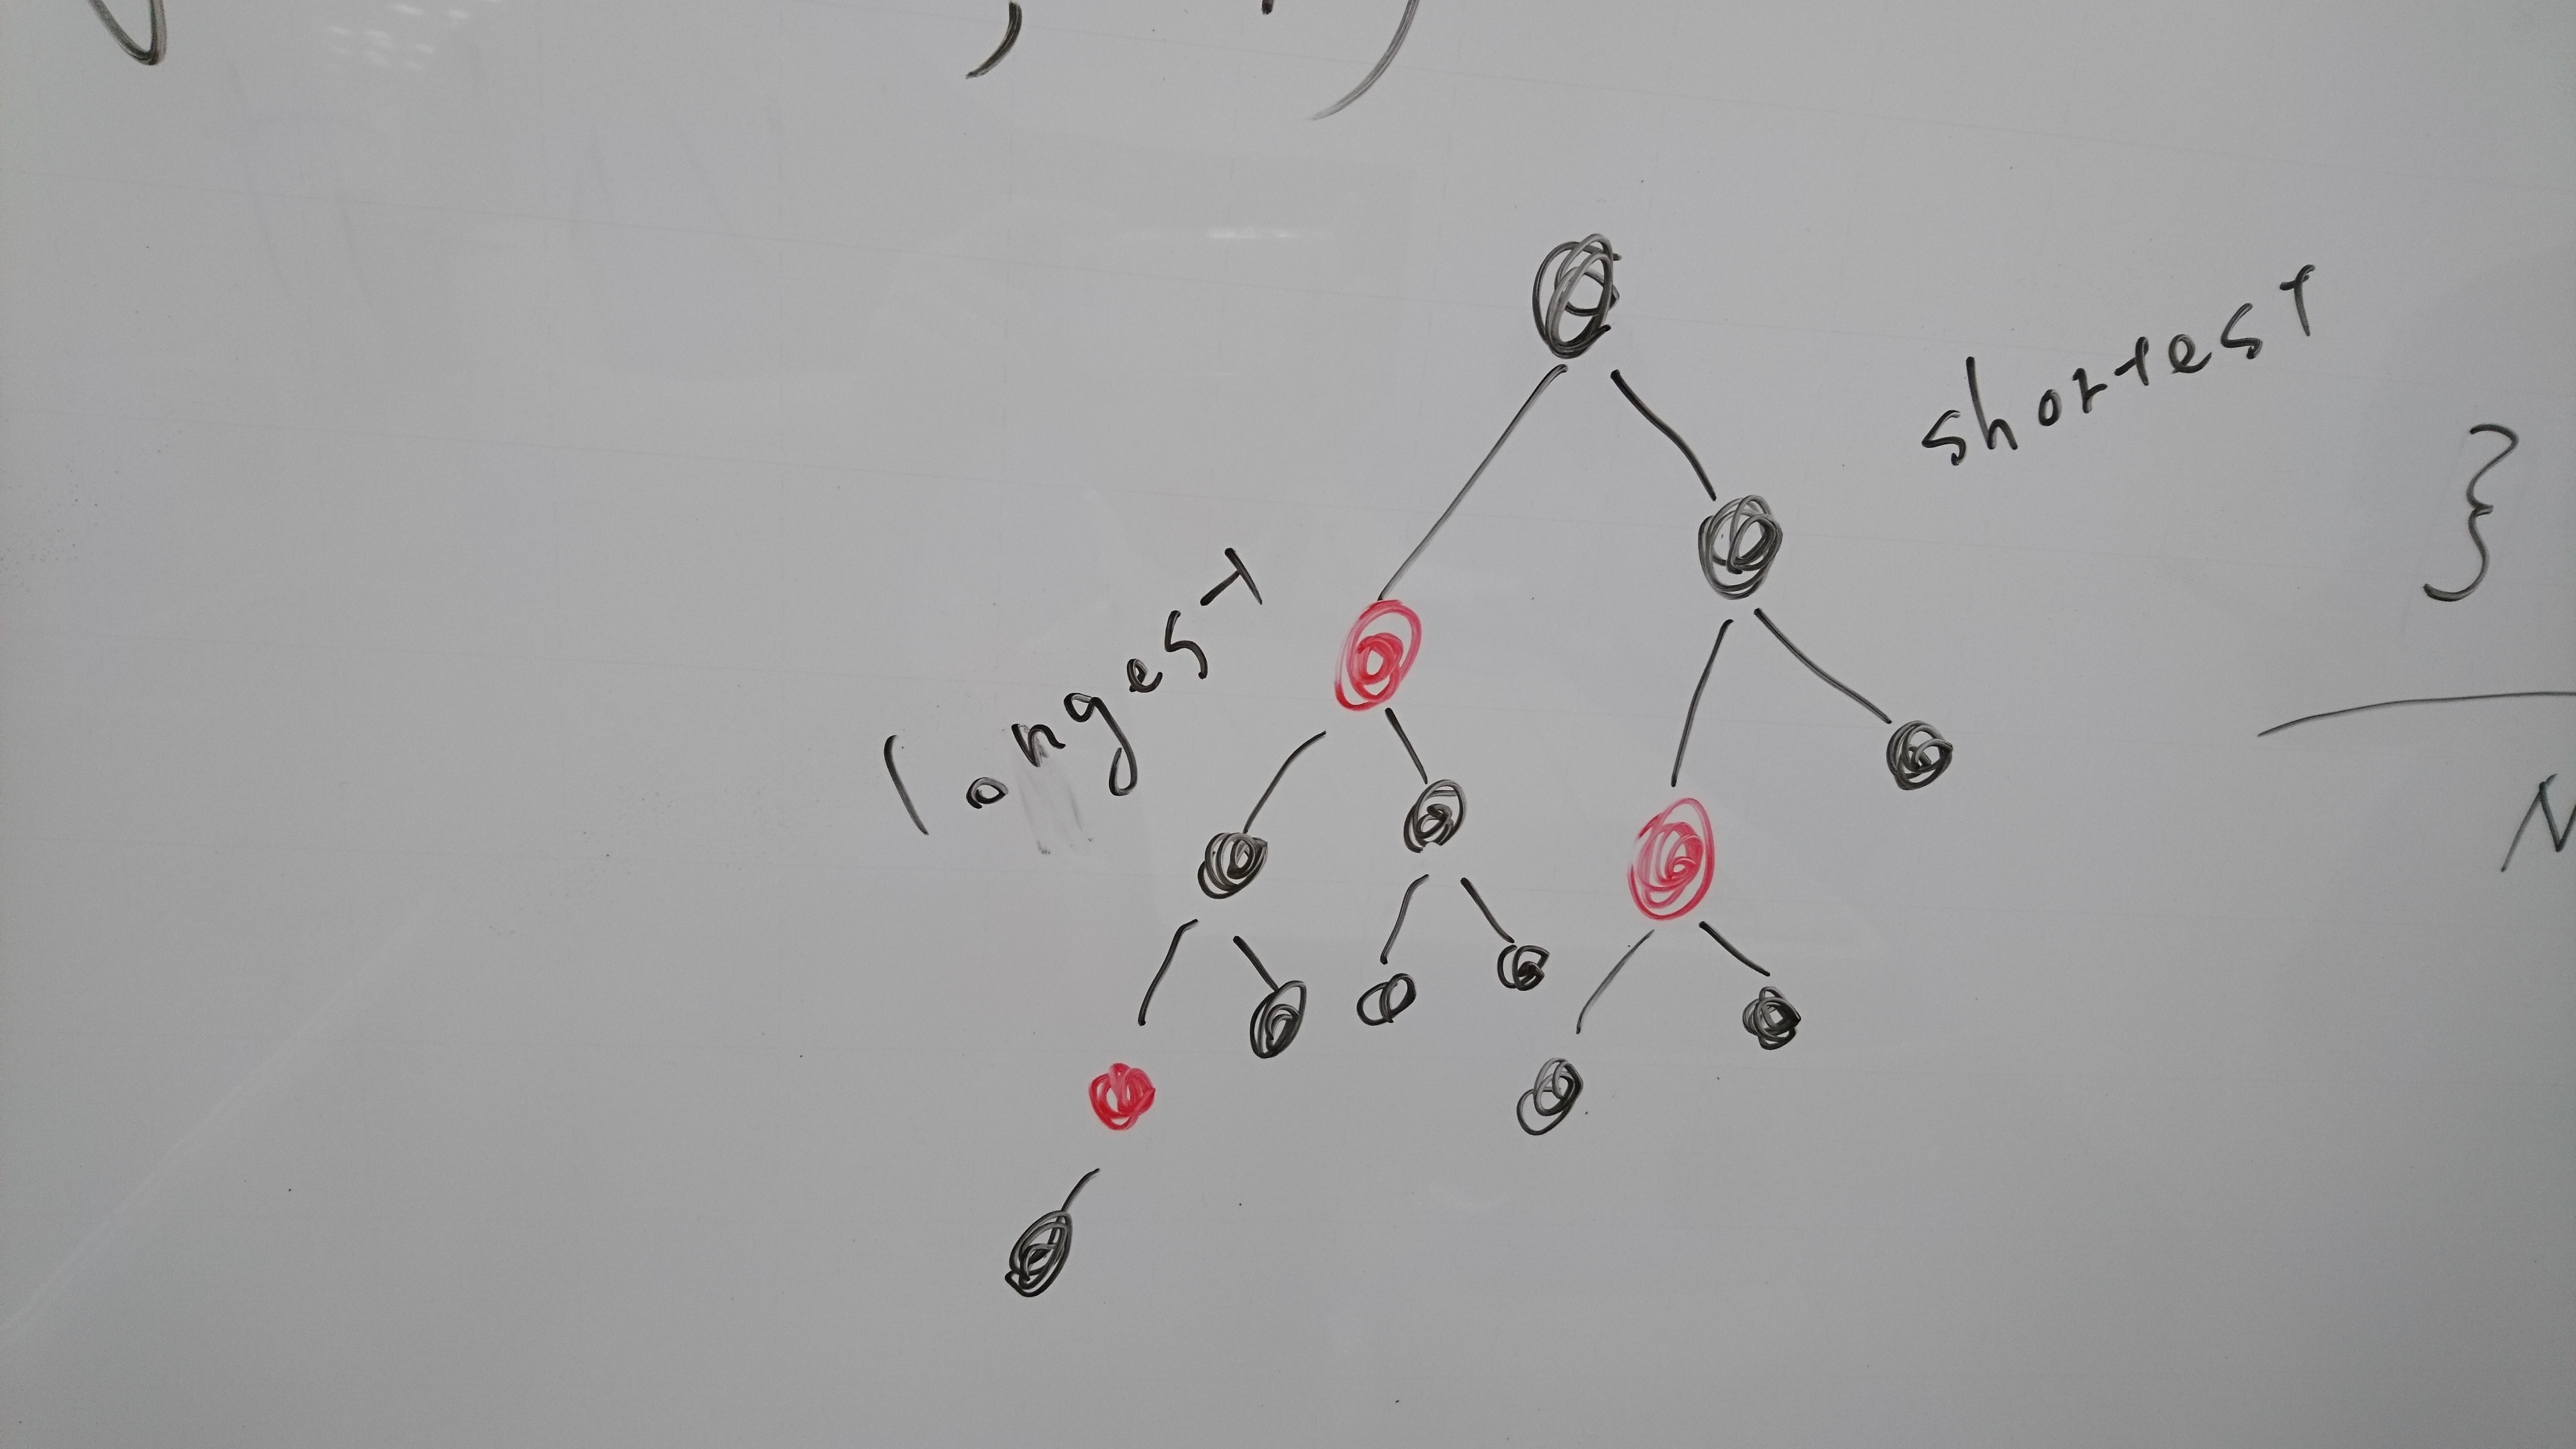 shortest
longest
}
N